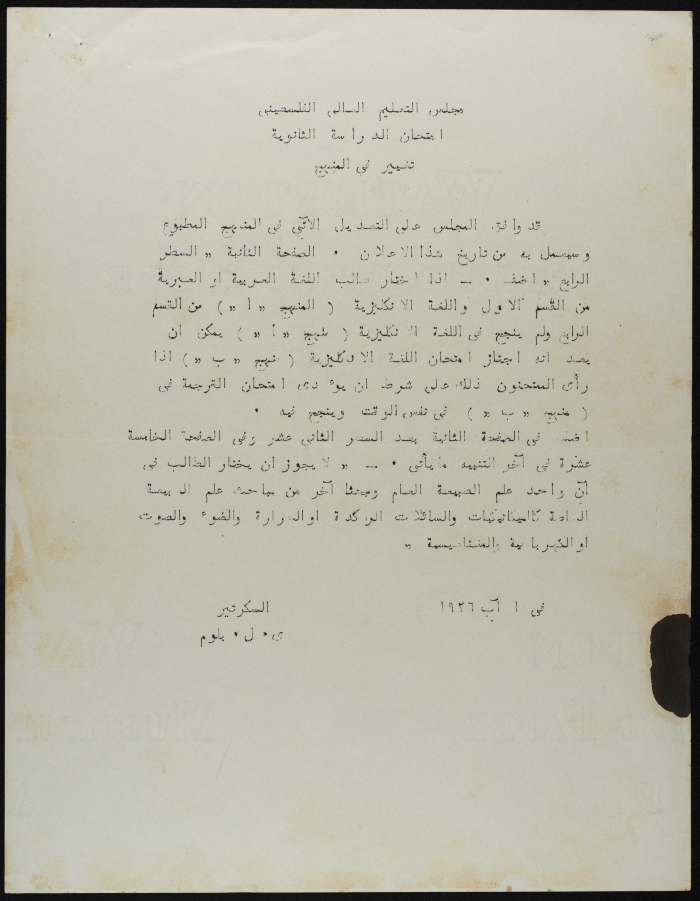 مجلس التعليم العالي الفلسطيني
امتحان الدراسة الثانوية
تغيير في المنهج
قد وافق المجلس على التعديل الآتي في المنهج المطبوع
وسيعمل به من تاريخ هذا الاعلان ٠ الصفحة الثانية „ السطر
الرابع „ اضف ٠ ــ اذا اختار طالب اللغة العربية او العبرية
من القسم الاول واللغة الانكليزية ( المنهج „ ا „ ) من القسم
الرابع ولم ينجح في اللغة الانكليزية ( منهج „ أ „ ) يمكن ان
يعد انه اجتاز امتحان اللغة الانكليزية ( منهج „ ب „ ) اذا
رأى الممتحنون ذلك على شرط ان يوءدى امتحان الترجمة في
( منهج „ ب „ ) في نفس الوقت وينجح فيه ٠
اضف في الصفحة الثانية بعد السطر الثاني عشر وفي الصفحة الخامسة
عشرة في آخر التنبيه ما يأتي ٠ ــ „ لا يجوز ان يختار الطالب في
آن واحد علم الطبيعة العام ومبحثا آخر من مباحث علم الطبيعة
الخاصة كالميكانيكيات والسائلات الراكدة او الحرارة والضوء والصوت
او الكهربائية والمغناطيسية „
في ١ آب ١٩٢٦
السكرتير
ى٠ ل ٠ بلوم